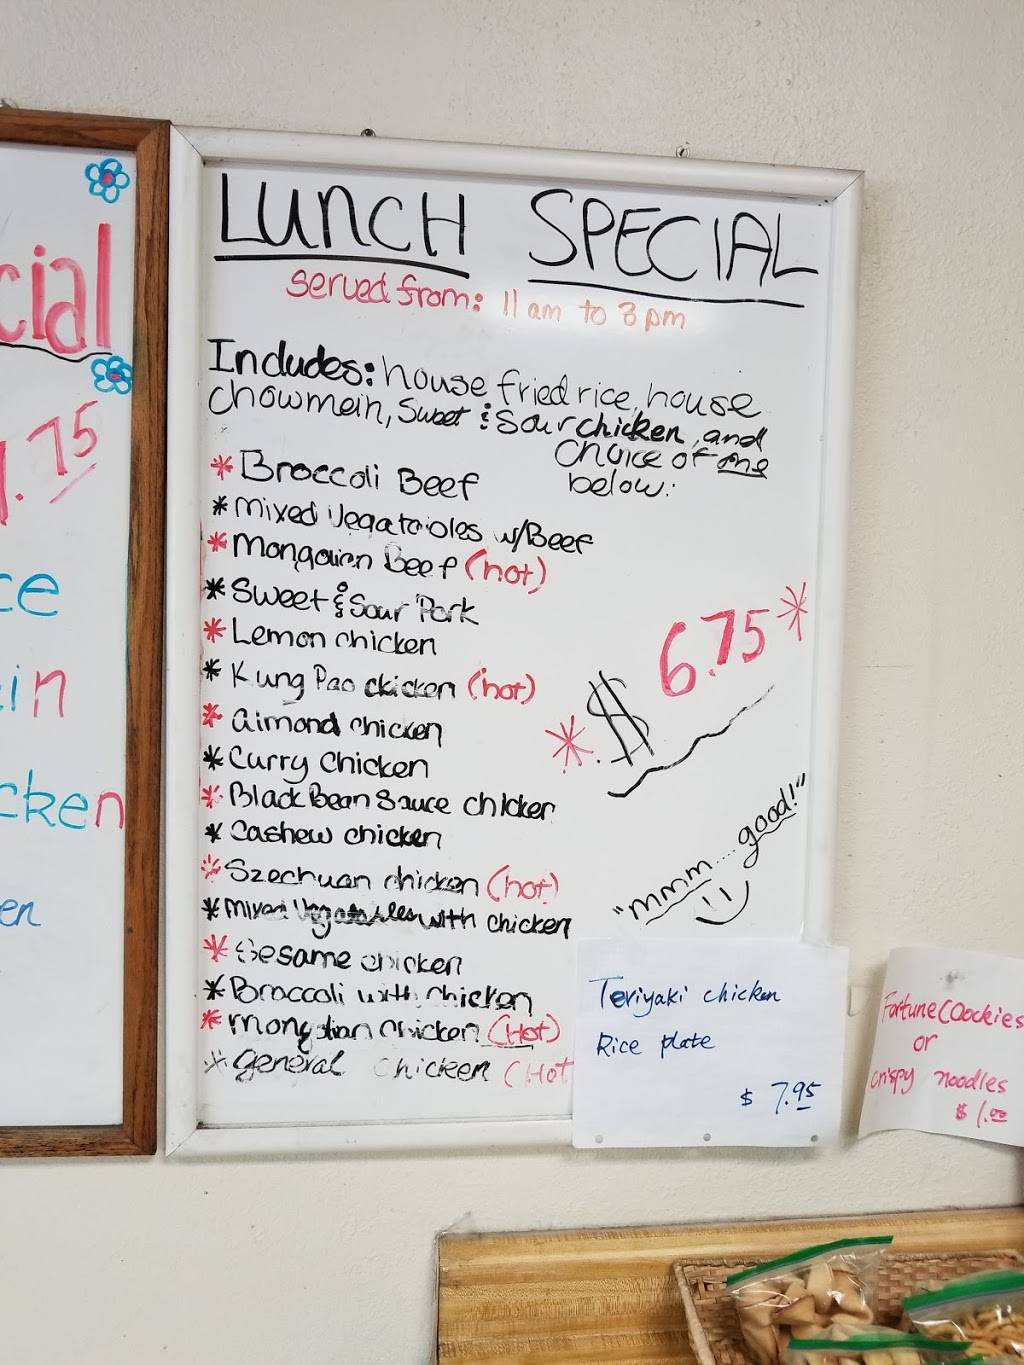 cial
.75
ce
in
cken
en
LUNCH SPECIAL
served from: 11 am to 3 pm
Includes: house fried rice, house
chowmein, sweet & sour chicken, and
choice of one
below:
* Broccoli Beef
* mixed Vegatables w/Beef
* mongolian Beef (hot)
* Sweet & Sour Pork
* Lemon chicken
* Kung Pao chicken (hot)
* almond chicken
* Curry Chicken
* Black Bean Sauce chicken
* Cashew chicken
* Szechuan chicken (hot)
* mixed Vegatables with chicken
* Sesame chicken
* Broccoli with chicken
* mongolian chicken (Hot)
* general chicken (Hot
* $ 6.75 *
"mmm....good!"
Teriyaki chicken
Rice plate
$ 7.95
Fortune Coockies
or
crispy noodles
$ 1.00